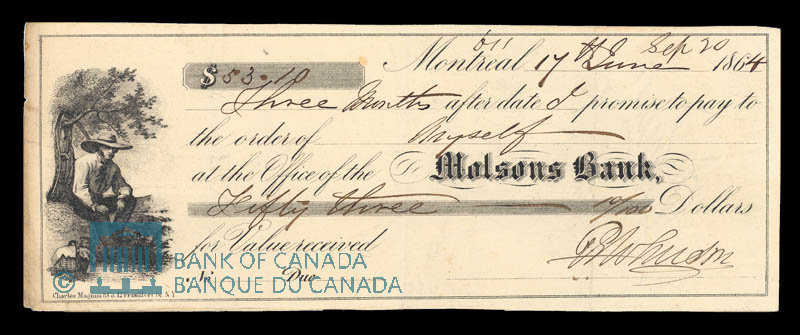 Sep 20
$ 53.10 Montreal 17th June 1864
Three Months after date I promise to pay to
the order of Myself
at the Office of the Molsons Bank,
Fifty three 10/100 Dollars
for Value received
No. Due
© BANK OF CANADA
BANQUE DU CANADA
Charles Magnus